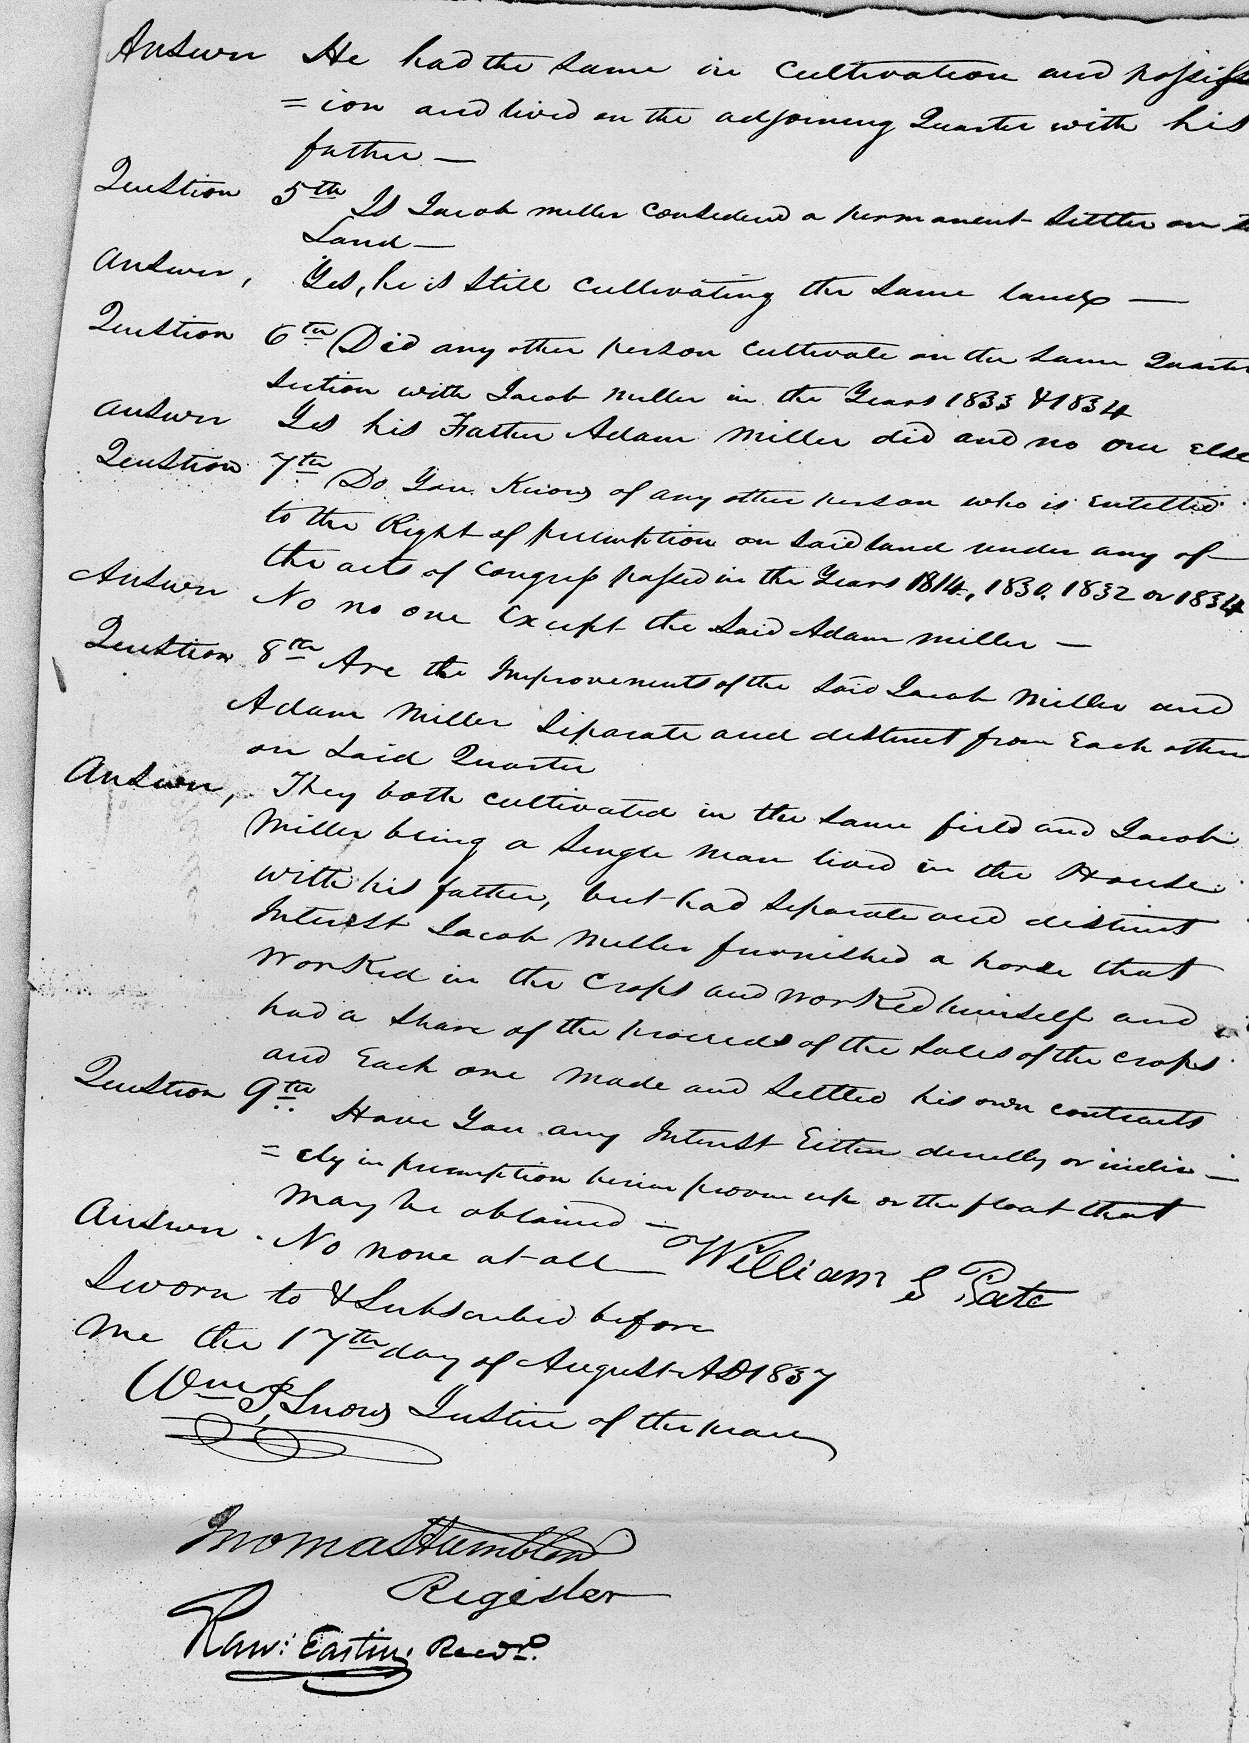 Answer He had the same in Cultivation and possess
=ion and lived on the adjoining Quarter with his
father —
Question 5th Is Jacob Miller Considered a permanent Settler on
Land —
Answer, Yes, he is still Cultivating the same land —
Question 6th Did any other person Cultivate on the same Quarter
Section with Jacob Miller in the Years 1833 & 1834
Answer Yes his Father Adam Miller did and no one else
Question 7th Do You Know of any other person who is entitled
to the Right of premption on said land under any of
the acts of Congress passed in the Years 1814, 1830, 1832 or 1834
Answer No no one Except the Said Adam Miller —
Question 8th Are the Improvements of the said Jacob Miller and
Adam Miller Separate and distinct from Each other
on Said Quarter
Answer, They both cultivated in the same field and Jacob
Miller being a Single man lived in the House
with his father, but had separate and distinct
Interest Jacob Miller furnished a horse that
worked in the Crops and worked himself and
had a share of the proceeds of the sales of the crops
and Each one made and Settled his own contracts
Question 9th Have You any Interest Either directly or indire —
=ctly in premption herein proven up or the float that
may be obtained —
Answer. No none at all — William G Pate
Sworn to & Subscribed before
me the 17th day of August AD 1837
Wm P. Snow Justice of the peace
Thomas Tumbled
Register
Raw: Eastin; Recvr.